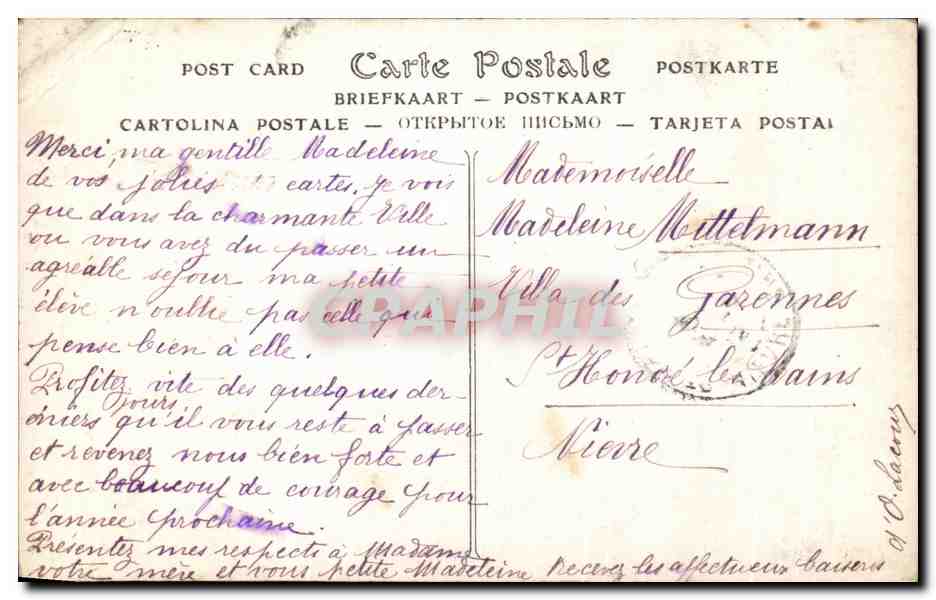 POST CARD Carte Postale POSTKARTE
BRIEFKAART — POSTKAART
CARTOLINA POSTALE — ОТКРЫТОЕ ПИСЬМО — TARJETA POSTAL
Merci, ma gentille Madeleine
de vos jolies cartes, je vois
que dans la charmante Ville
ou vous avez du passer un
agréable séjour ma petite
élève n'oublie pas celle qui
pense bien à elle.
Profitez vite des quelques der-
jours
niers qu'il vous reste à passer
et revenez nous bien forte et
avec beaucoup de courage pour
l'année prochaine.
Présentez mes respects à Madame
votre mère et vous petite Madeleine recevez les affectueux baisers
d'O. Lacour
Mademoiselle
Madeleine Mittelmann
Villa des Garennes
St Honoré les bains
Nièvre
CPAPHIL